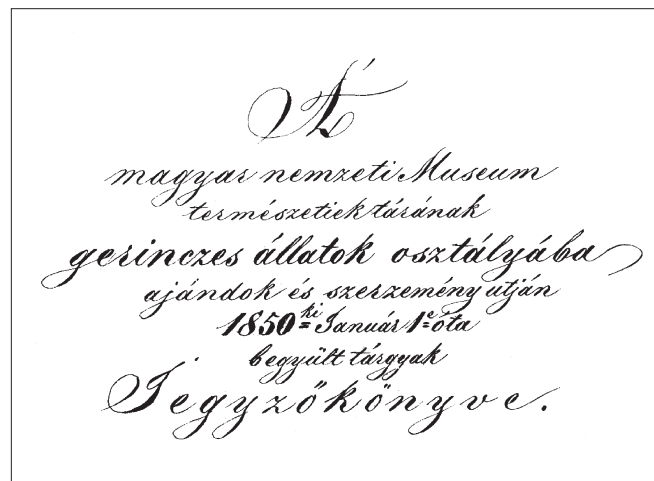 A'
magyar nemzeti Museum
természetiek tárának
gerinczes állatok osztályába
ajándok és szerzemény utján
1850ki Január 1e óta
begyült tárgyak
Jegyzőkönyve.